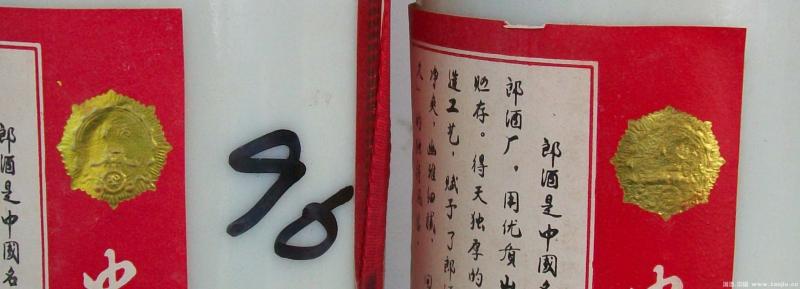 郎酒是中國名
中
90
郎酒是中國名
郎酒厂,用优质山
贮存。得天独厚的
造工艺,赋予了郎酒
净爽 幽雅细腻,回
久"的
中